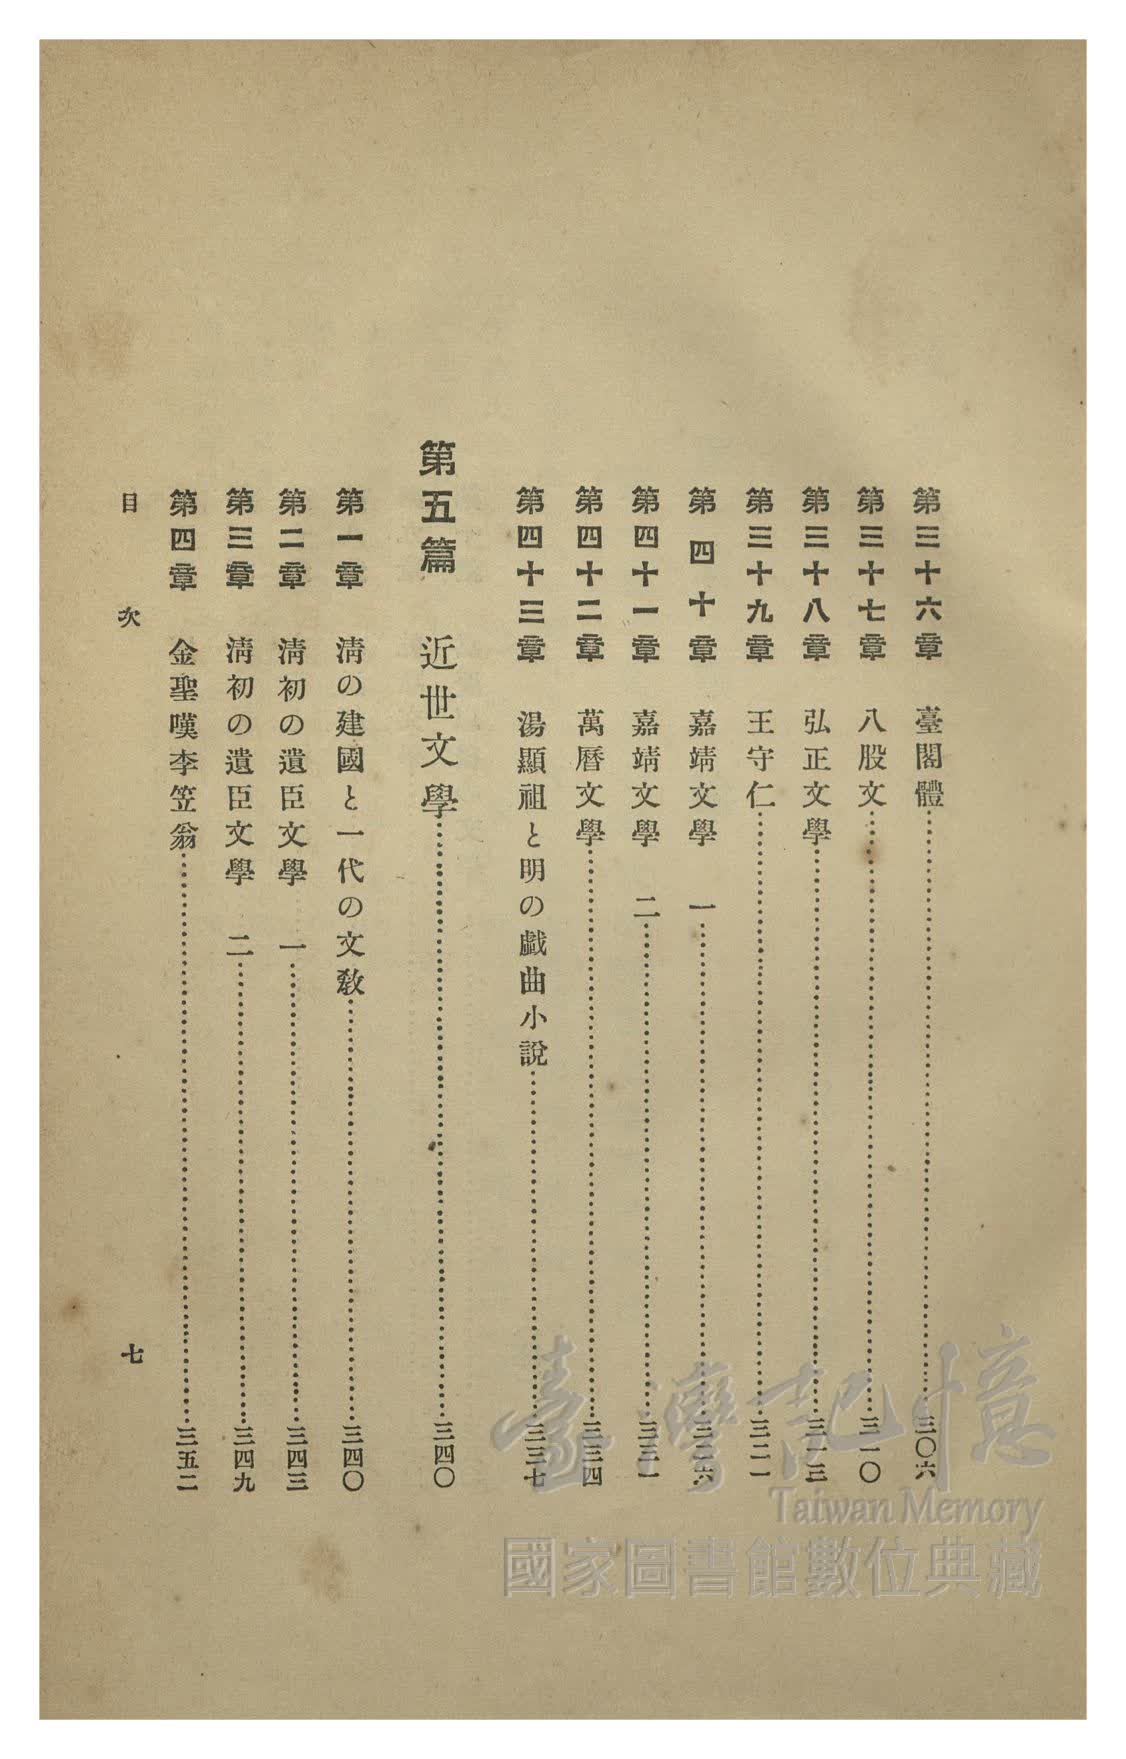 第三十六章 臺閣體…………三〇六
第三十七章 八股文…………三一〇
第三十八章 弘正文學…………三一三
第三十九章 王守仁…………三二一
第四十章 嘉靖文學 一…………三二六
第四十一章 嘉靖文學 二…………三三一
第四十二章 萬曆文學…………三三四
第四十三章 湯顯祖と明の戯曲小說…………三三七
第五篇 近世文學…………三四〇
第一章 淸の建國と一代の文敎…………三四〇
第二章 淸初の遺臣文學 一…………三四三
第三章 淸初の遺臣文學 二…………三四九
第四章 金聖嘆李笠翁…………三五二
目次 七
臺灣記憶
Taiwan Memory
國家圖書館數位典藏